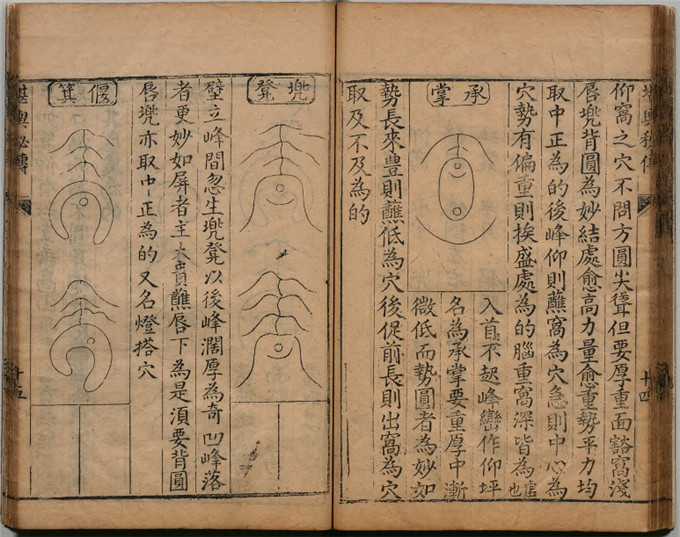 堪輿秘傳
十四
仰窩之穴不問方圓尖聳但要厚重面豁窩淺
唇兠背圓為妙結處愈高力量愈重勢平力均
取中正為的後峰仰則蘸窩為穴急則中心為
穴勢有偏重則挨盛處為的腦重窩深皆為虛也
承掌
入首不起峰巒作仰坪
名為承掌要重厚中漸
微低而勢圓者為妙如
勢長來豊則蘸低為穴後促前長則出窩為穴
取及不及為的
兠凳
壁立峰間忽生兠凳以後峰濶厚為奇凹峰落
者更妙如屏者主大貴蘸唇下為是湏要背圓
唇兠亦取中正為的又名燈搭穴
偃箕
堪輿秘傳
十五